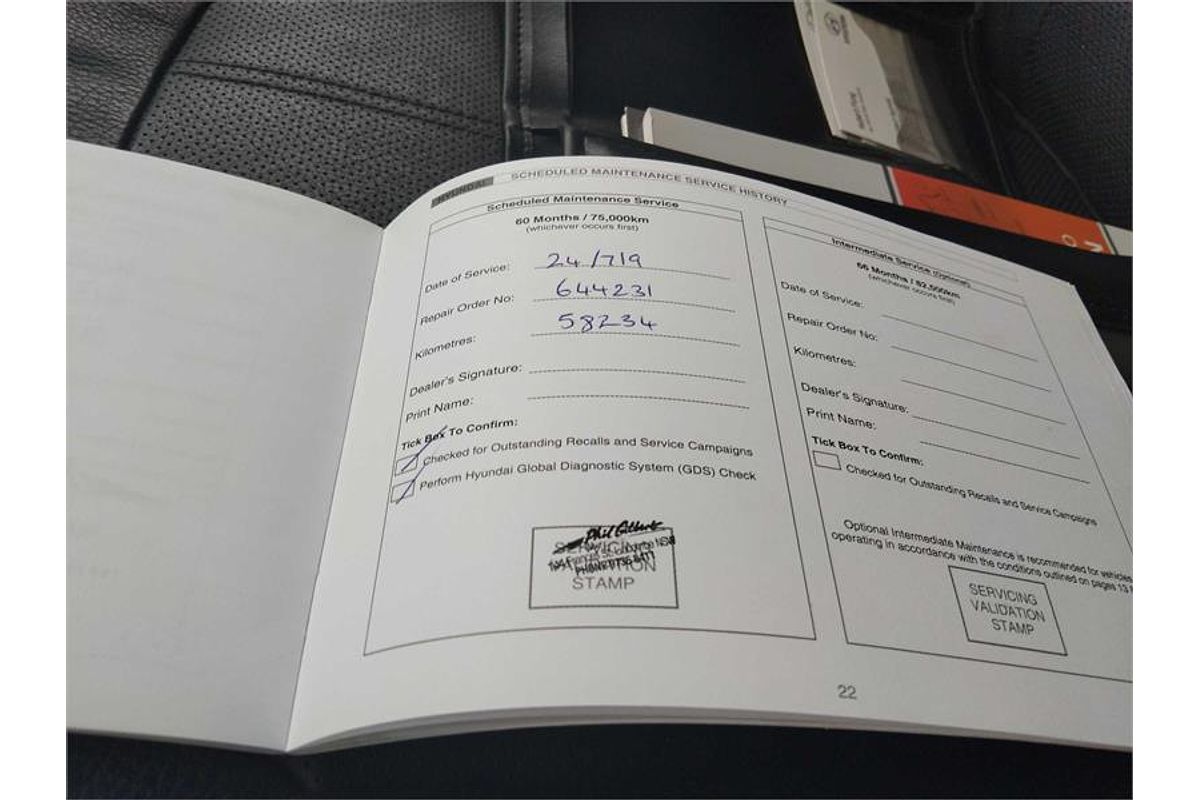 HYUNDAI SCHEDULED MAINTENANCE SERVICE HISTORY
Scheduled Maintenance Service
60 Months / 75,000km
(whichever occurs first)
Date of Service: 24/7/19
Repair Order No: 644231
Kilometres: 58234
Dealer's Signature:
Print Name:
Tick Box To Confirm:
Checked for Outstanding Recalls and Service Campaigns
Perform Hyundai Global Diagnostic System (GDS) Check
Phil Gilbert
SERVICING
VALIDATION
STAMP
Intermediate Service (optional)
66 Months / 82,500km
(whichever occurs first)
Date of Service:
Repair Order No:
Kilometres:
Dealer's Signature:
Print Name:
Tick Box To Confirm:
Checked for Outstanding Recalls and Service Campaigns
Optional Intermediate Maintenance is recommended for vehicles
operating in accordance with the conditions outlined on pages 13
SERVICING
VALIDATION
STAMP
22